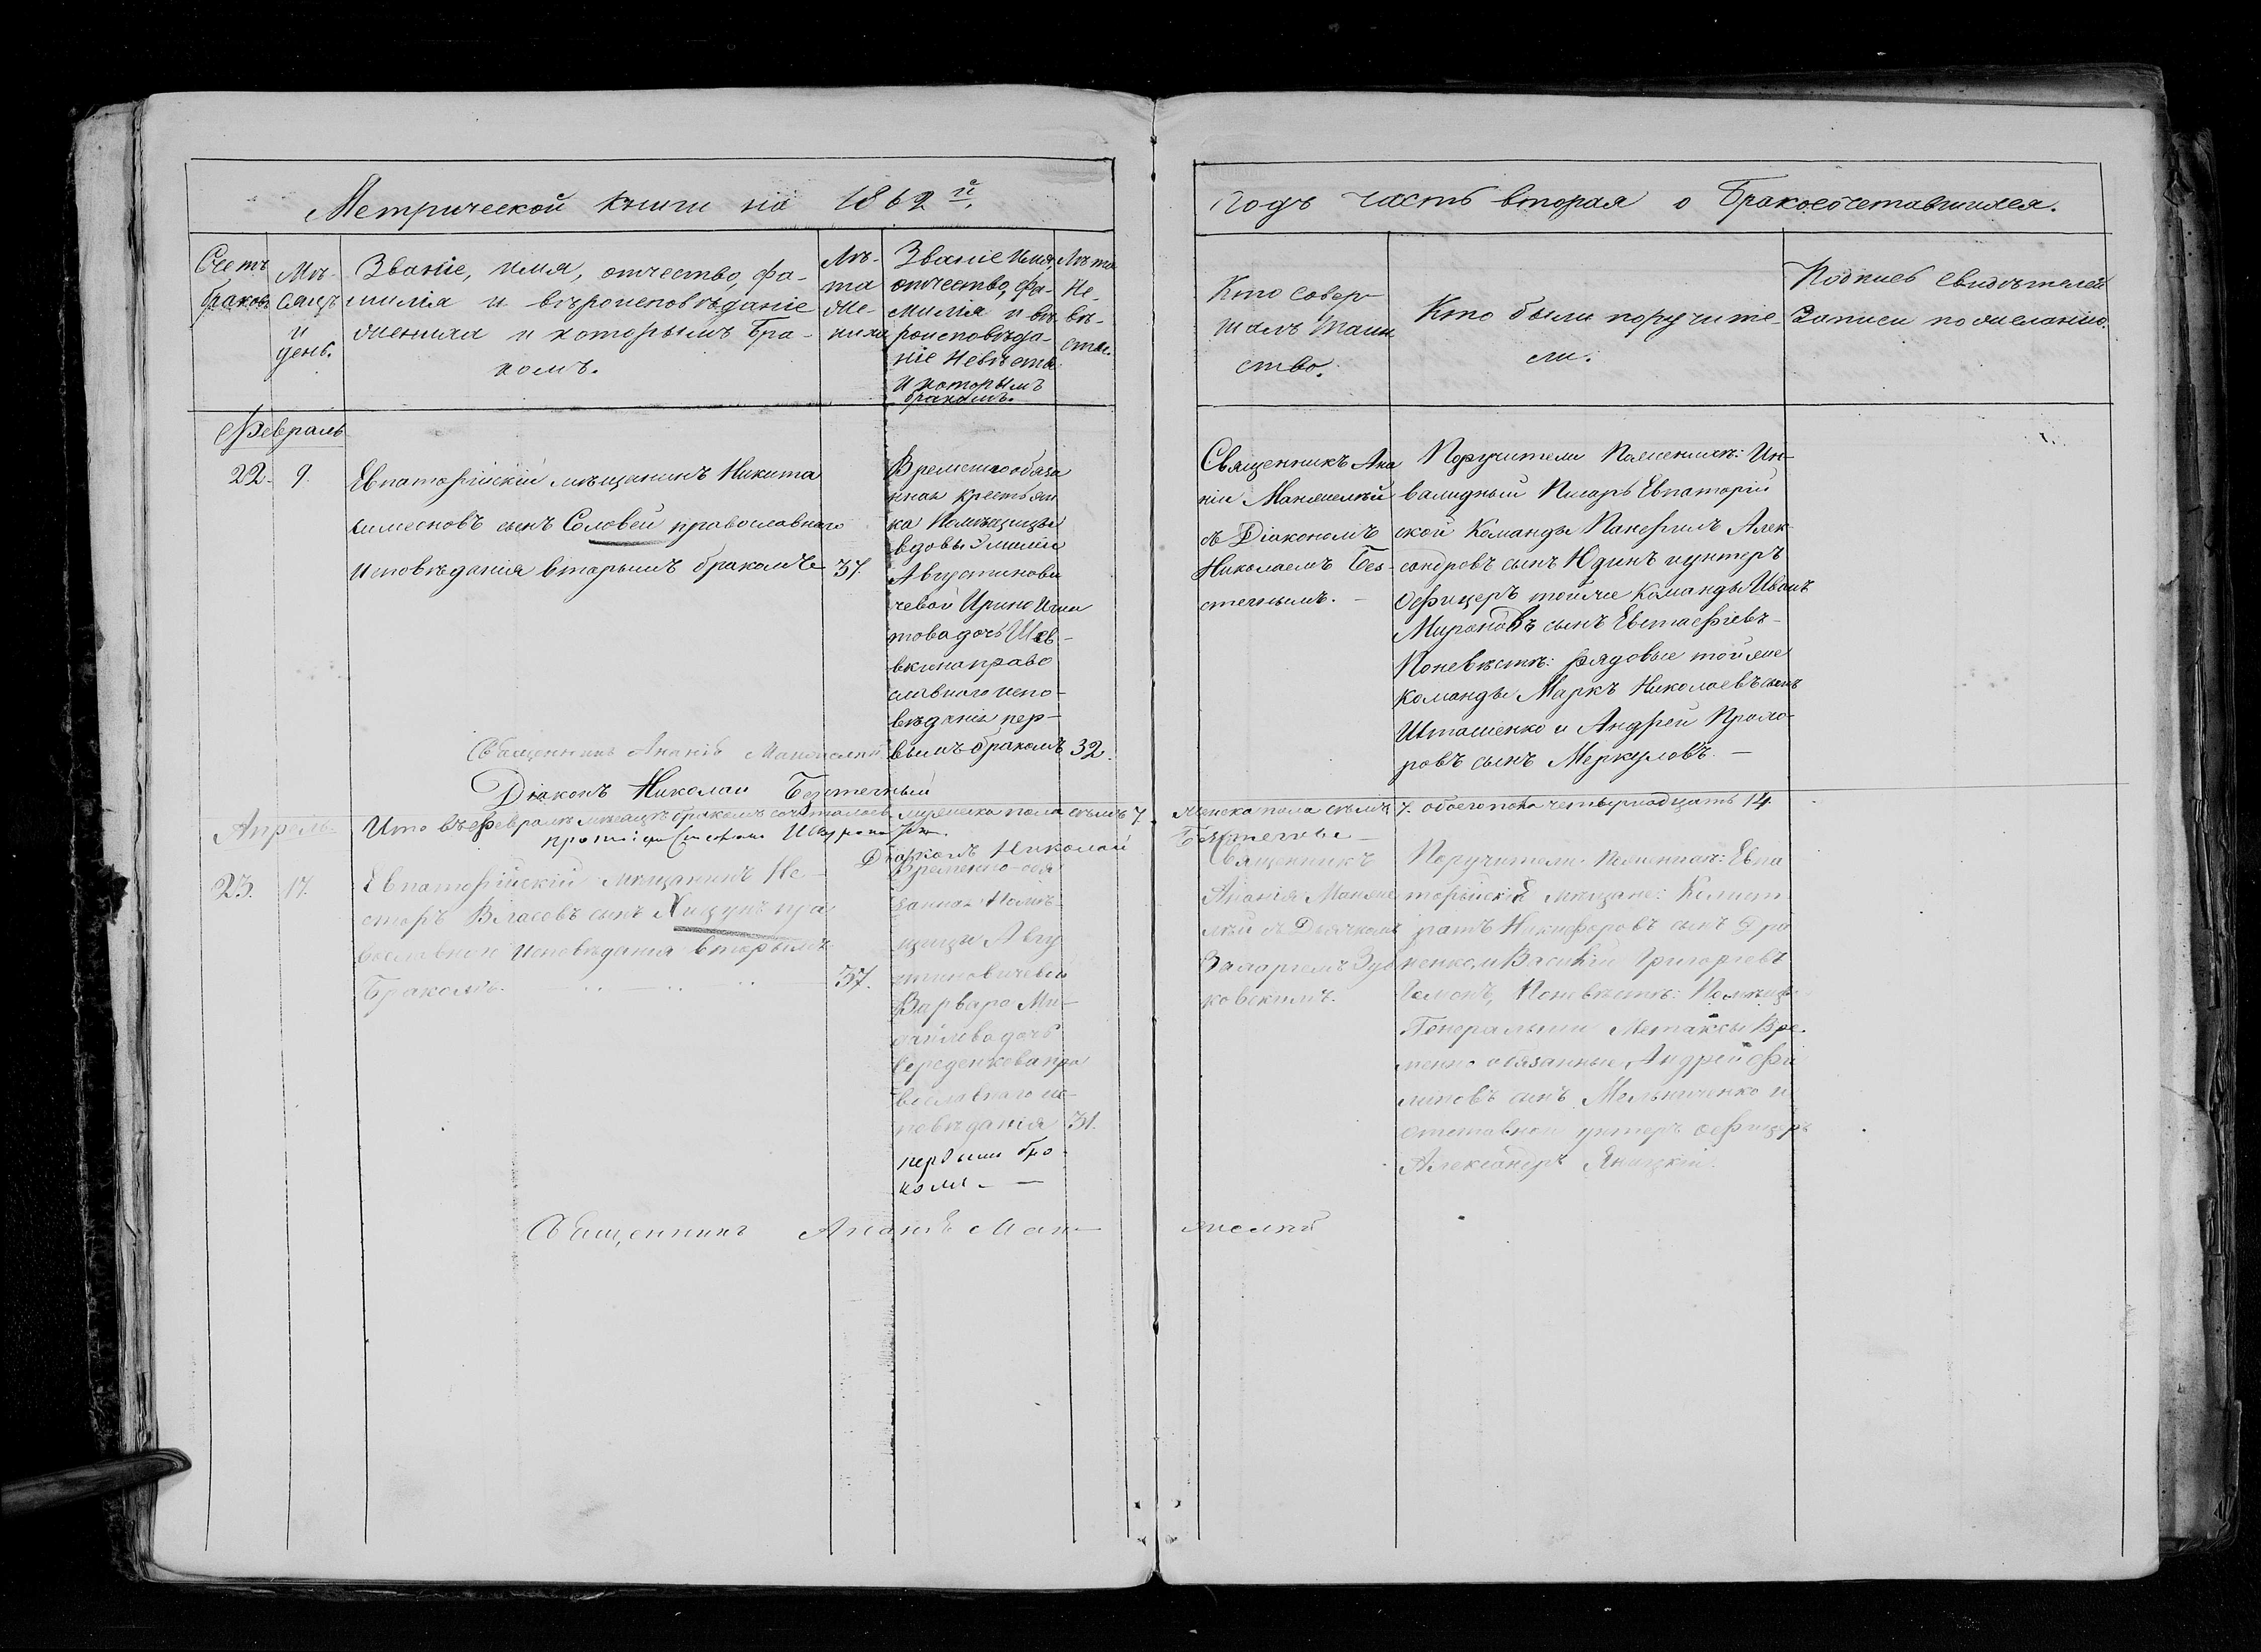 Метрической книги на 1862 й.
Годъ часть вторая о Бракосочетавшихся.
Счетъ браковъ
Мѣсяцъ и день.
Званіе, имя, отчество, фа-
милія и вѣроисповѣданіе
жениха и которымъ Бра-
комъ.
Лѣ-
та
же-
ниха
Званіе имя,
отчество, фа-
милія и вѣ-
роисповѣда-
ніе Невѣсты
и которымъ
бракомъ.
Лѣта
Не-
вѣ-
сты.
Кто совер
шалъ таин
ство.
Кто были поручите-
ли.
Подпись свидѣтелей
Записи по желанію.
Февраль
22. 9.
Евпаторійскій мѣщанинъ Никита
сынъ Соловей православнаго
Исповѣданія вторымъ бракомъ 37.
Временнообяза
нная крестьян
ка Помѣщицы
вдовы Эмиліи
Августинови
чевой Ирина
това дочь Шев-
вкина право
славнаго испо-
вѣданія пер-
вымъ бракомъ 32.
Священникъ Ана
ній Манжелѣй
съ Діакономъ
Николаемъ Без-
стечнымъ. -
Поручители Поженихѣ: Ин-
валидный Писарь Евпаторій
ской Команды Панфилъ Алек-
сандровъ сынъ Юдинъ иунтеръ
Офицеръ тойже Команды Иванъ
Мироновъ сынъ Евстафіевъ -
Поневѣстѣ: рядовые тойже
Команды Маркъ Николаевъ сынъ
Шташенко и Андрей Прохо-
ровъ сынъ Меркуловъ. -
Священникъ Ананій Манжелѣй
Діаконъ Николай Безстечный
Ито въ Февралѣ мѣсяцѣ бракомъ сочеталось мужеска пола семь 7. Женска пола семь 7. обоего пола четырнадцать 14.
Діаконъ Николай Безстечный -
Апрѣль
23. 17.
Евпаторійскій мѣщанинъ Не-
сторъ Власовъ сынъ Хищунъ пра
вославнаго Исповѣданія вторымъ
Бракомъ. 37.
Временно-обя
занная Помѣ-
щицы Авгу
стиновичевой
Варвара Ми-
хаилова дочь
Середенкова пра
вославнаго ис-
повѣданія 31.
первымъ бра
комъ - -
Священникъ
Ананій Манже
лѣй съ Дьячкомъ
Захаріемъ Зуб
ковскимъ.
Поручители. Поженихѣ: Евпа
торійскій мѣщане: Кондит
ратъ Никифоровъ сынъ
ненко, и Василій Григоріевъ
Поневѣстѣ: Помѣщи
Генеральши Метаксы Вре-
менно обязанные, Андрей Фи
липовъ сынъ Мельниченко и
отставной унтеръ офицеръ
Александръ Яницкій.
Священникъ Ананій Манжелѣй